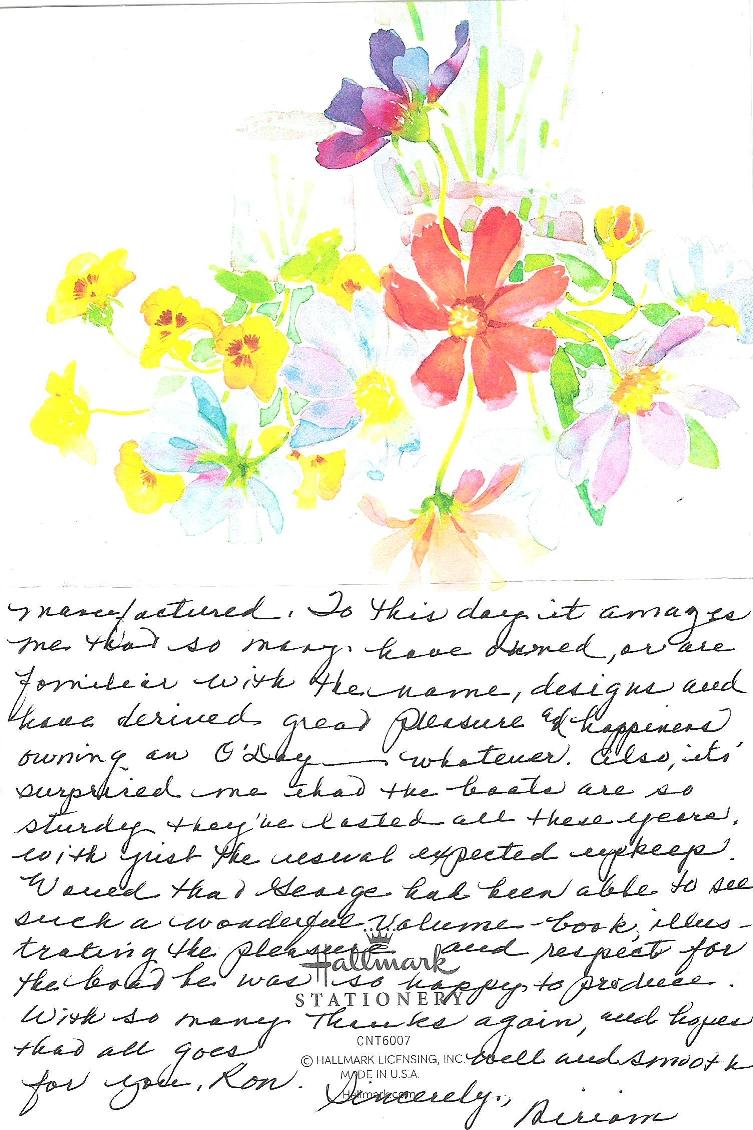 manufactured. To this day it amazes
me that so many have owned, or are
familiar with the name, designs and
have derived great pleasure and happiness
owning an O'Day — whatever. Also, its'
surprised me that the boats are so
sturdy they've lasted all these years,
with just the usual expected upkeep.
Would that George had been able to see
such a wonderful Volume-book, illus-
trating the pleasure and respect for
the boat he was so happy to produce.
Hallmark
STATIONERY
With so many Thanks again, and hopes
CNT6007
that all goes well and smooth
© HALLMARK LICENSING, INC.
MADE IN U.S.A.
for you, Ron.
Hallmark.com
Sincerely,